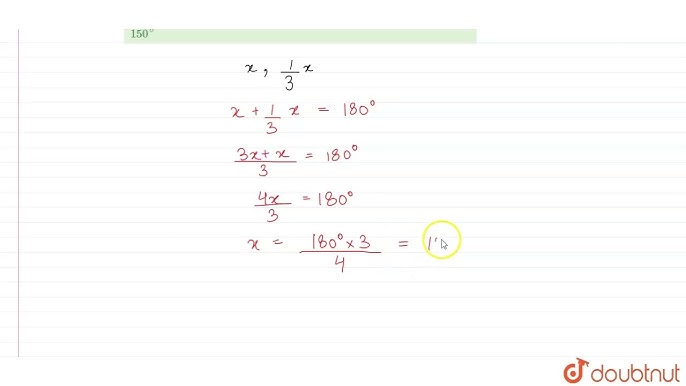 150°
x , 1/3 x
x + 1/3 x = 180°
3x + x / 3 = 180°
4x / 3 = 180°
x = 180° × 3 / 4 = 1
doubtnut